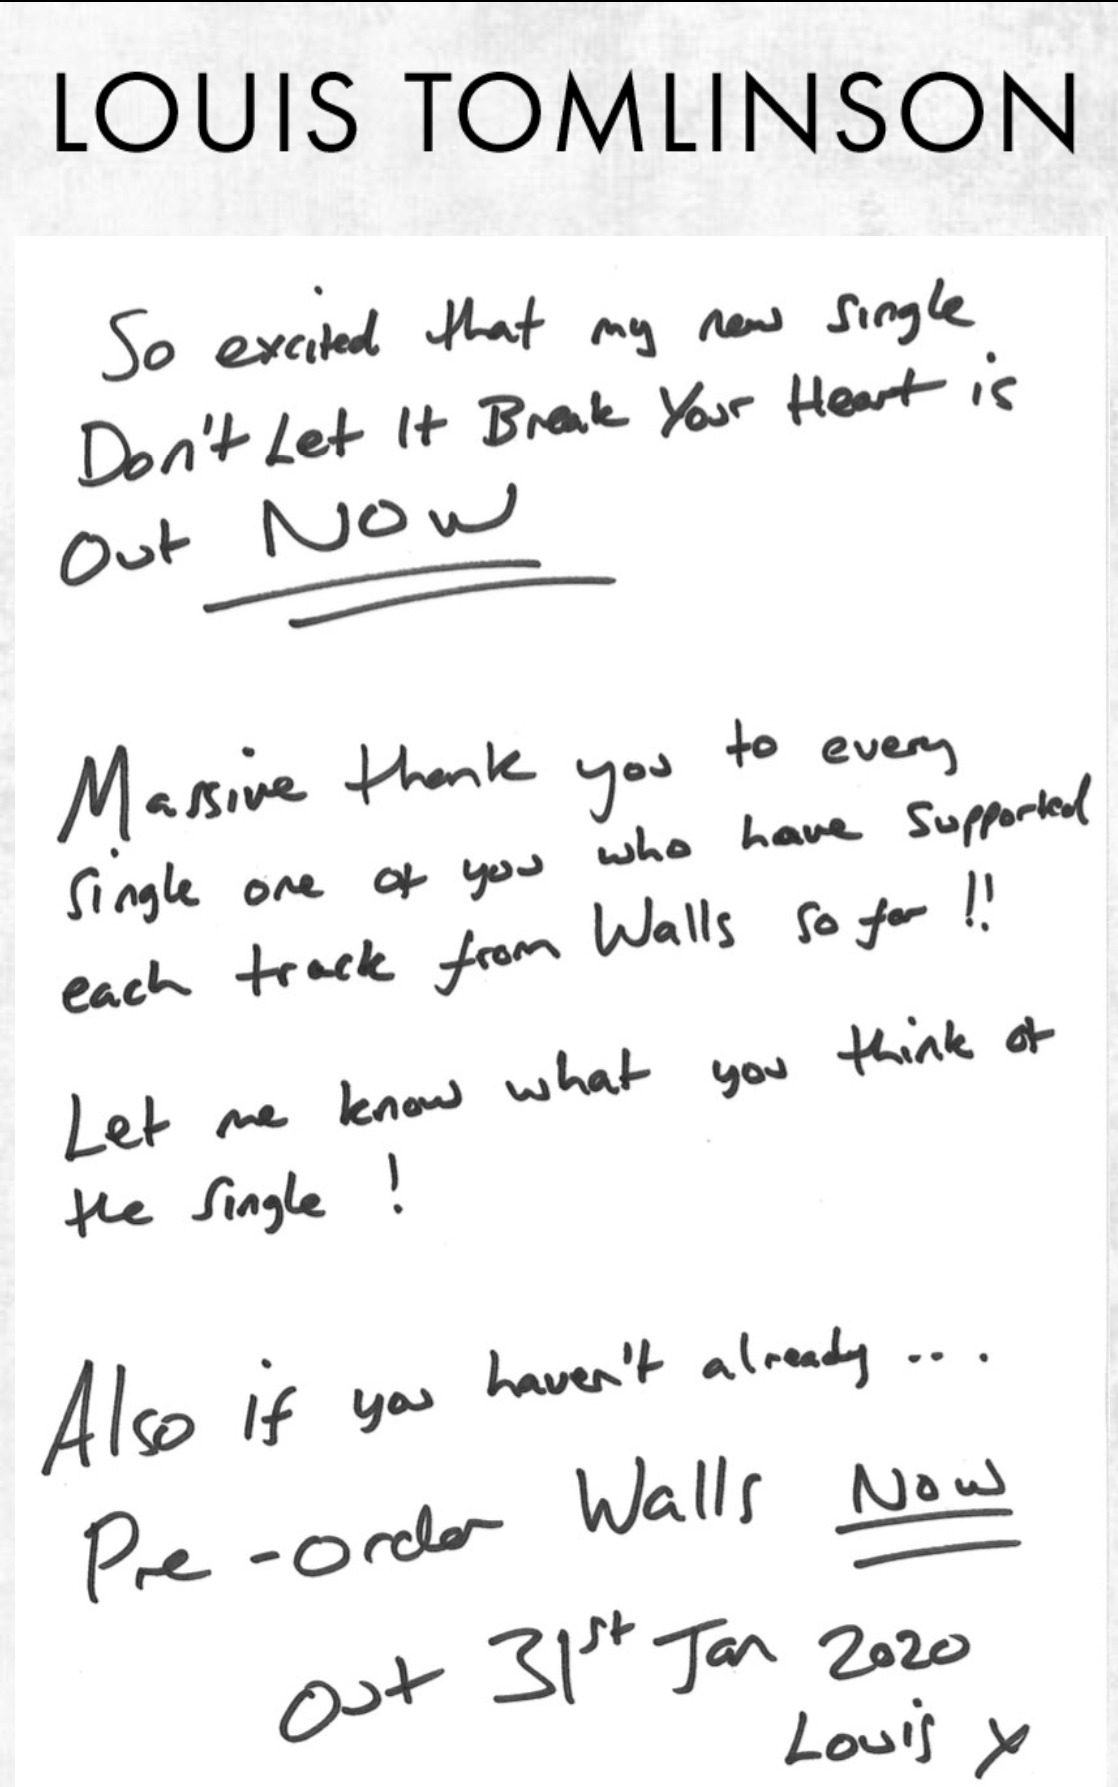 LOUIS TOMLINSON
So excited that my new single
Don't Let It Break Your Heart is
Out NOW
Massive thank you to every
single one of you who have supported
each track from Walls so far !!
Let me know what you think of
the single !
Also if you haven't already ....
Pre-order Walls NOW
Out 31st Jan 2020
Louis x